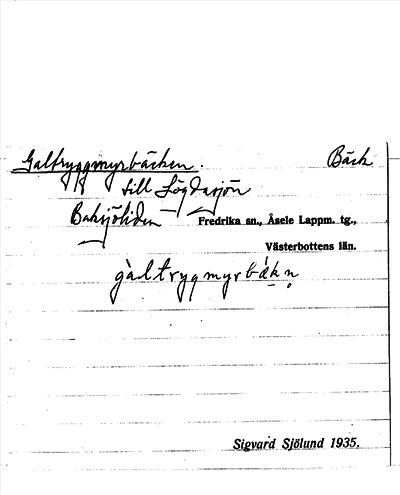 Galtryggmyrbäcken. Bäck
till Lögdasjön
Baksjöliden Fredrika sn., Åsele Lappm. tg.,
Västerbottens län.
gàltrygmyrbä́kn̥
Sigvard Sjölund 1935.